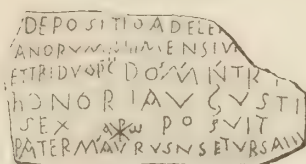 DEPOSITIO ADELE
ANORVM MENSIV
ET TRIDVO PC DOMINI TR
hONORI AVGVSTI
SEX POSVIT
PATER MAVRVS NS ET VRSA